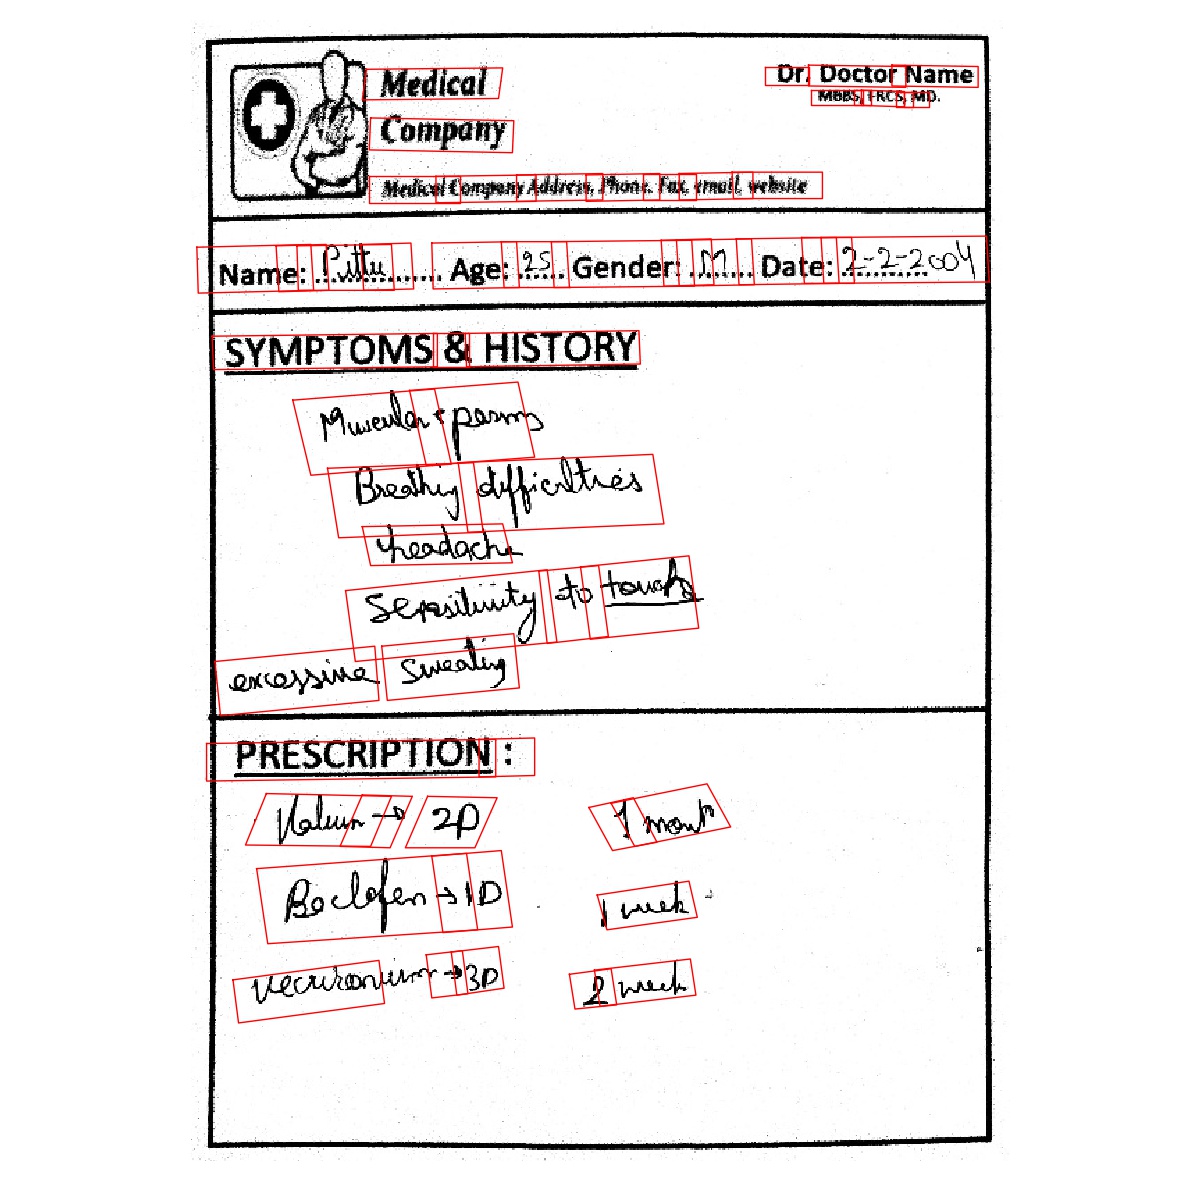 Medical
Company
Dr. Doctor Name
MBBS, FRCS, MD.
Medical Company Address, Phone, Fax, email, website
Name: Pittu Age: 25 Gender: M Date: 2-2-2004
SYMPTOMS & HISTORY
Muscular spasms
Breathing difficulties
headache
Sensitivity to touch
excessive sweating
PRESCRIPTION :
Valium → 2D 1 month
Baclofen → 1D 1 week
Vecuronium → 3D 2 week